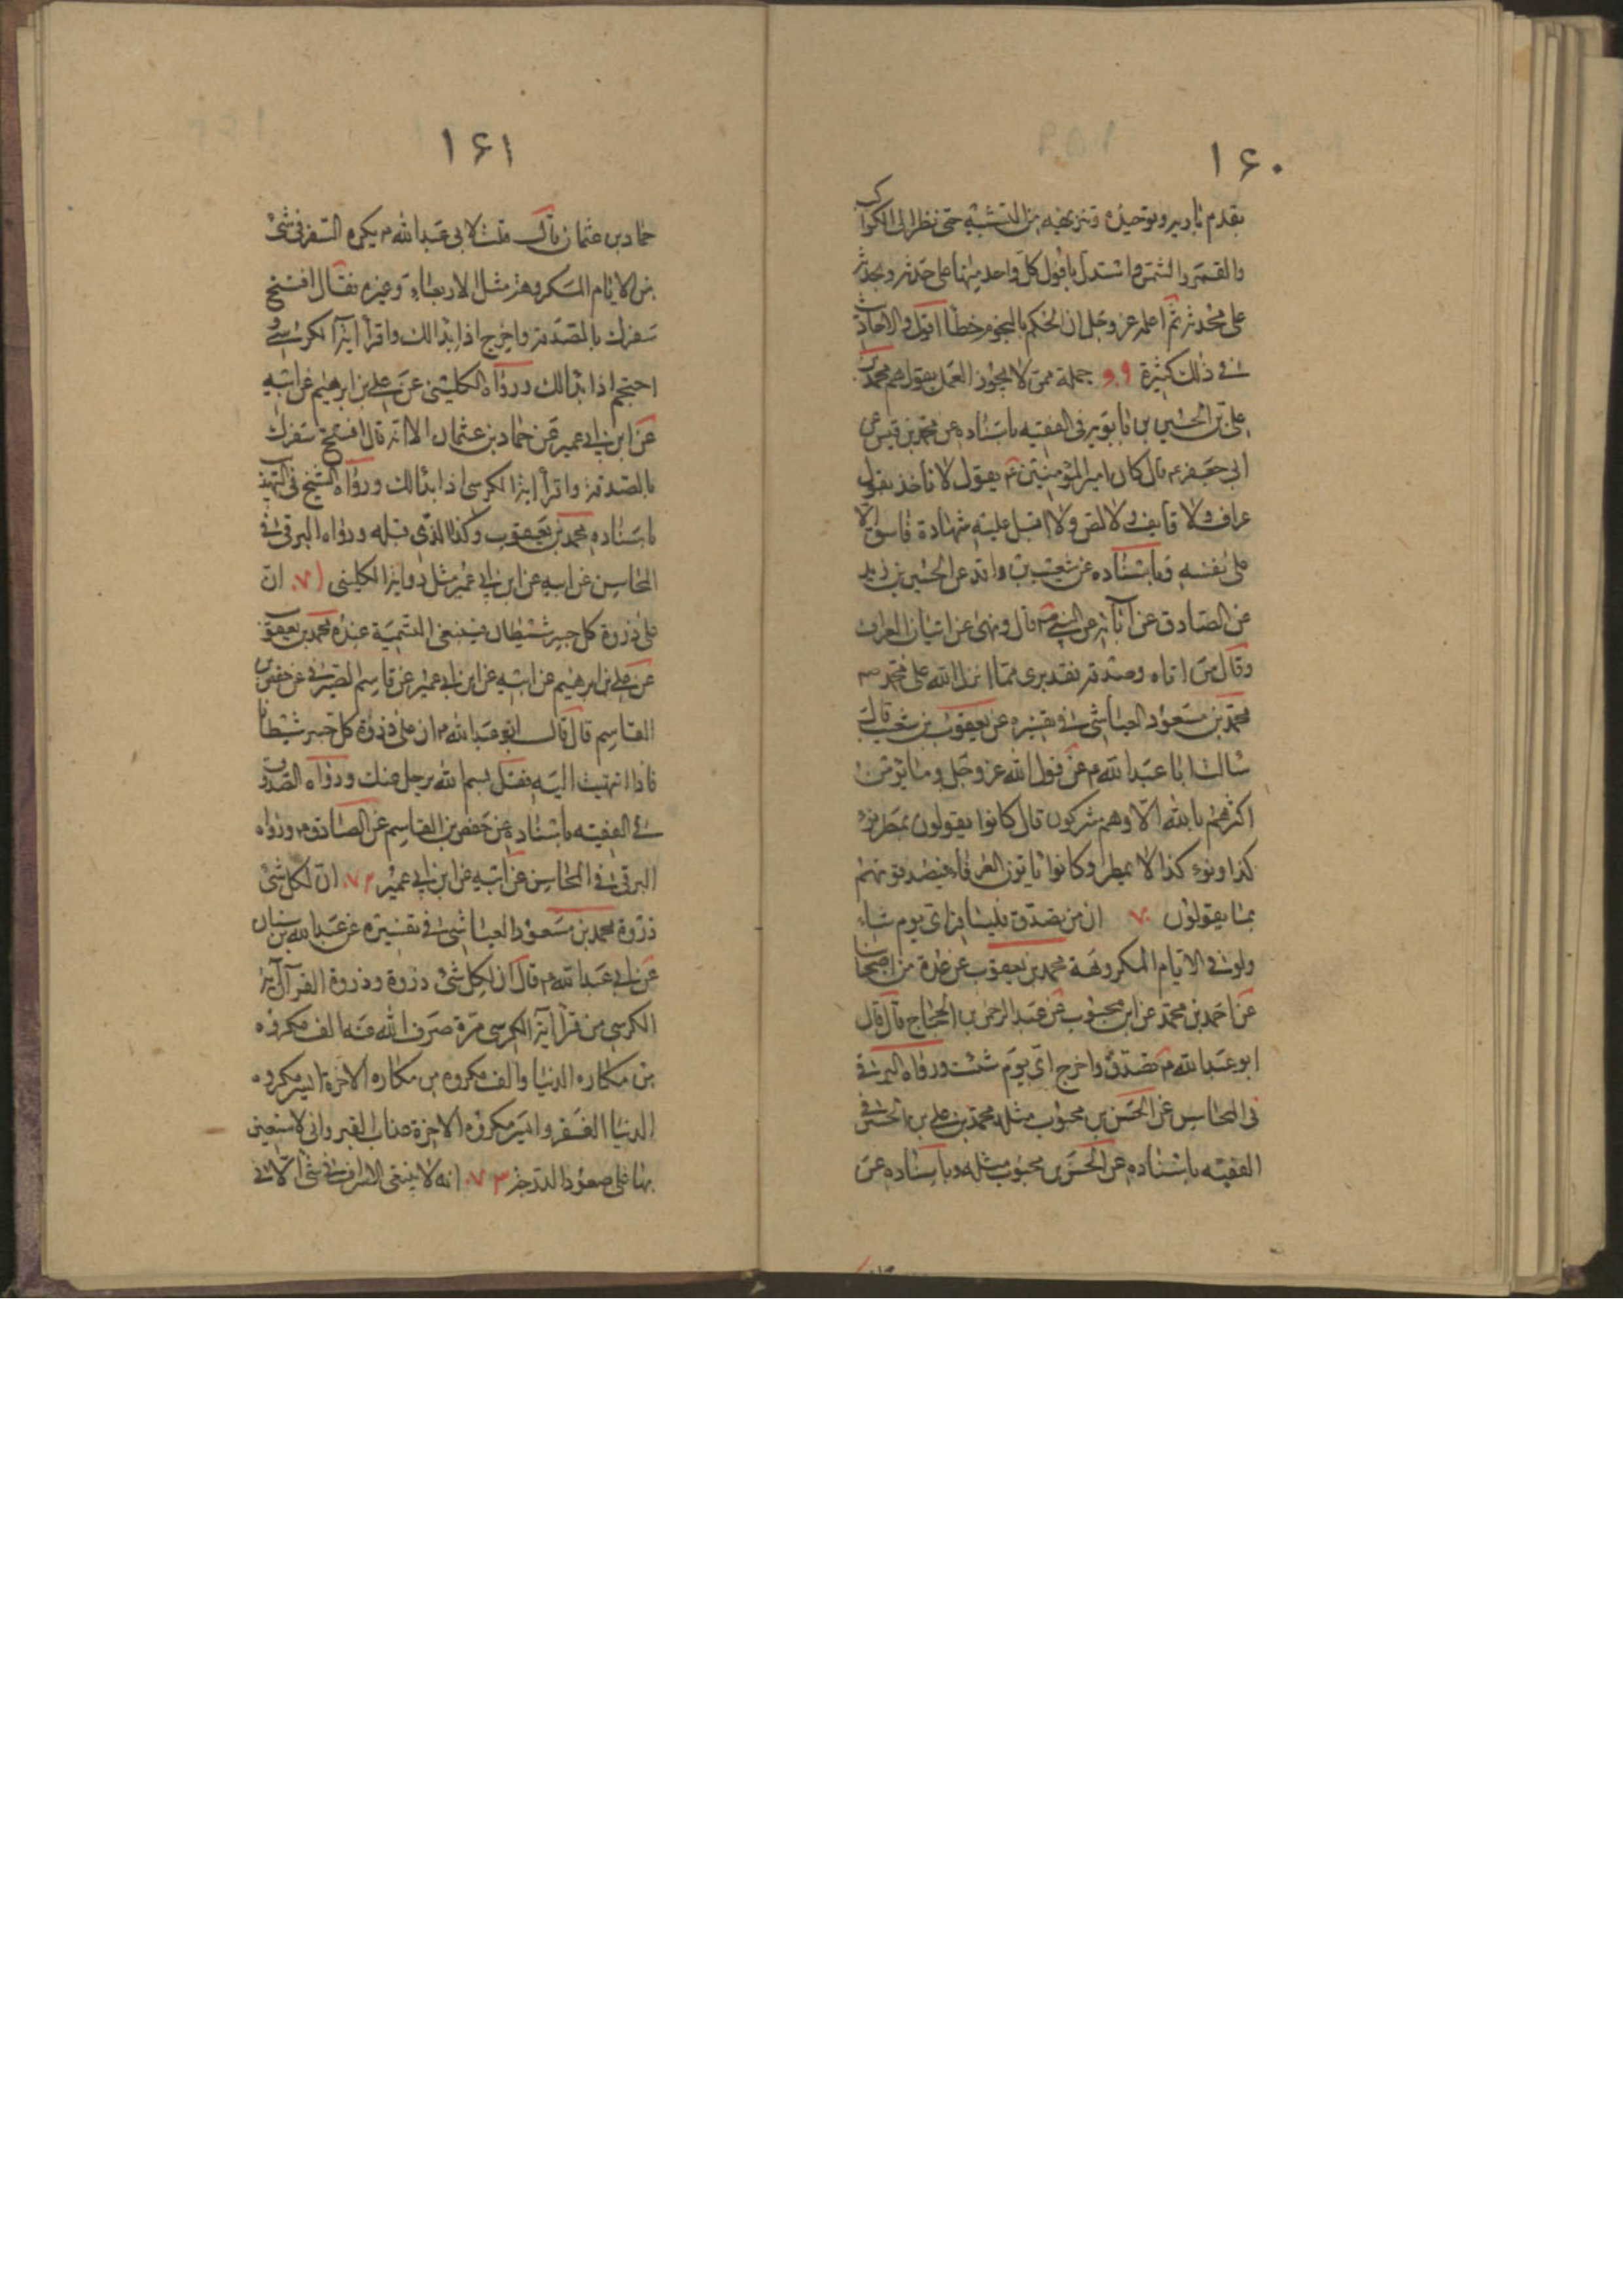 ۱۶۰
بقدم باريه وتوحيده وتنزيهه من التشبيه حتى نظر الى الكواكب
والقمر والشمس واستدل بافول كل واحد منها على حدثه وبحدثه
على محدثه ثم اعلمه عز وجل ان الحكم بالنجوم خطأ اقول والاحاديث
فى ذلك كثيرة ۶۹ جملة ممن لا يجوز العمل بقولهم محمد بن
على بن الحسين بن بابويه فى الفقيه باسناده عن محمد بن قيس عن
ابى جعفر ع قال كان امير المؤمنين ع يقول لا تأخذ بقول
عراف ولا قايف ولا لص ولا اقبل عليه شهادة فاسق الا
على نفسه وباسناده عن شعيب بن واقد عن الحسين بن زيد
عن الصادق عن آبائه عن النبى ص قال ونهى عن اتيان العراف
وقال من اتاه وصدقه فقد برى مما انزل الله على محمد ص
محمد بن مسعود العياشى فى تفسيره عن يعقوب بن شعيب قال
سالت ابا عبد الله م عن قول الله عز وجل وما يؤمن
اكثرهم بالله الا وهم مشركون قال كانوا يقولون نمطر بنوء
كذا ونوء كذا لا نمطر وكانوا ياتون العرفاء فيصدقونهم
بما يقولون ۷۰ ان من تصدق فليسافر اى يوم شاء
ولو فى الايام المكروهة محمد بن يعقوب عن عدة من اصحابنا
عن احمد بن محمد عن ابن محبوب عن عبد الرحمن بن الحجاج قال قال
ابو عبد الله م تصدق واخرج اى يوم شئت ورواه البرقى
فى المحاسن عن الحسن بن محبوب مثله محمد بن على بن الحسين فى
الفقيه باسناده عن الحسن بن محبوب مثله وباسناده عن
۱۶۱
حماد بن عثمان قال قلت لابى عبد الله م يكره السفر فى شئ
من الايام المكروهة مثل الاربعاء وغيره فقال افتتح
سفرك بالصدقة واخرج اذا بدا لك واقرأ آية الكرسى و
احتجم اذا بدا لك ورواه الكلينى عن على بن ابرهيم عن ابيه
عن ابن ابى عمير عن حماد بن عثمان الا انه قال افتتح سفرك
بالصدقة واقرأ اية الكرسى اذا بدا لك ورواه الشيخ فى التهذيب
باسناده محمد بن يعقوب وكذا الذى قبله ورواه البرقى فى
المحاسن عن ابيه عن ابن ابى عمير مثل رواية الكلينى ۷۱ ان
على ذروة كل جسر شيطان فينبغى التسمية عنده محمد بن يعقوب
عن على بن ابرهيم عن ابيه عن ابن ابى عمير عن قاسم الصيرفى عن حفص بن
القاسم قال قال ابو عبد الله م ان على ذروة كل جسر شيطانا
فاذا انتهيت اليه فقل بسم الله يرحل عنك ورواه الصدوق
فى الفقيه باسناده عن حفص بن القاسم عن الصادق م ورواه
البرقى فى المحاسن عن ابيه عن ابن ابى عمير ۷۲ ان لكل شئ
ذروة محمد بن مسعود العياشى فى تفسيره عن عبد الله بن سنان
عن ابى عبد الله م قال ان لكل شئ ذروة وذروة القرآن آية
الكرسى من قرأ آية الكرسى مرة صرف الله عنه الف مكروه
من مكاره الدنيا والف مكروه من مكاره الاخرة ايسر مكروه
الدنيا الفقر وايسر مكروه الاخرة عذاب القبر وانى لاستعين
بها على صعود الدرجة ۷۳ انه لا ينبغى الاسراف فى شئ الا فى